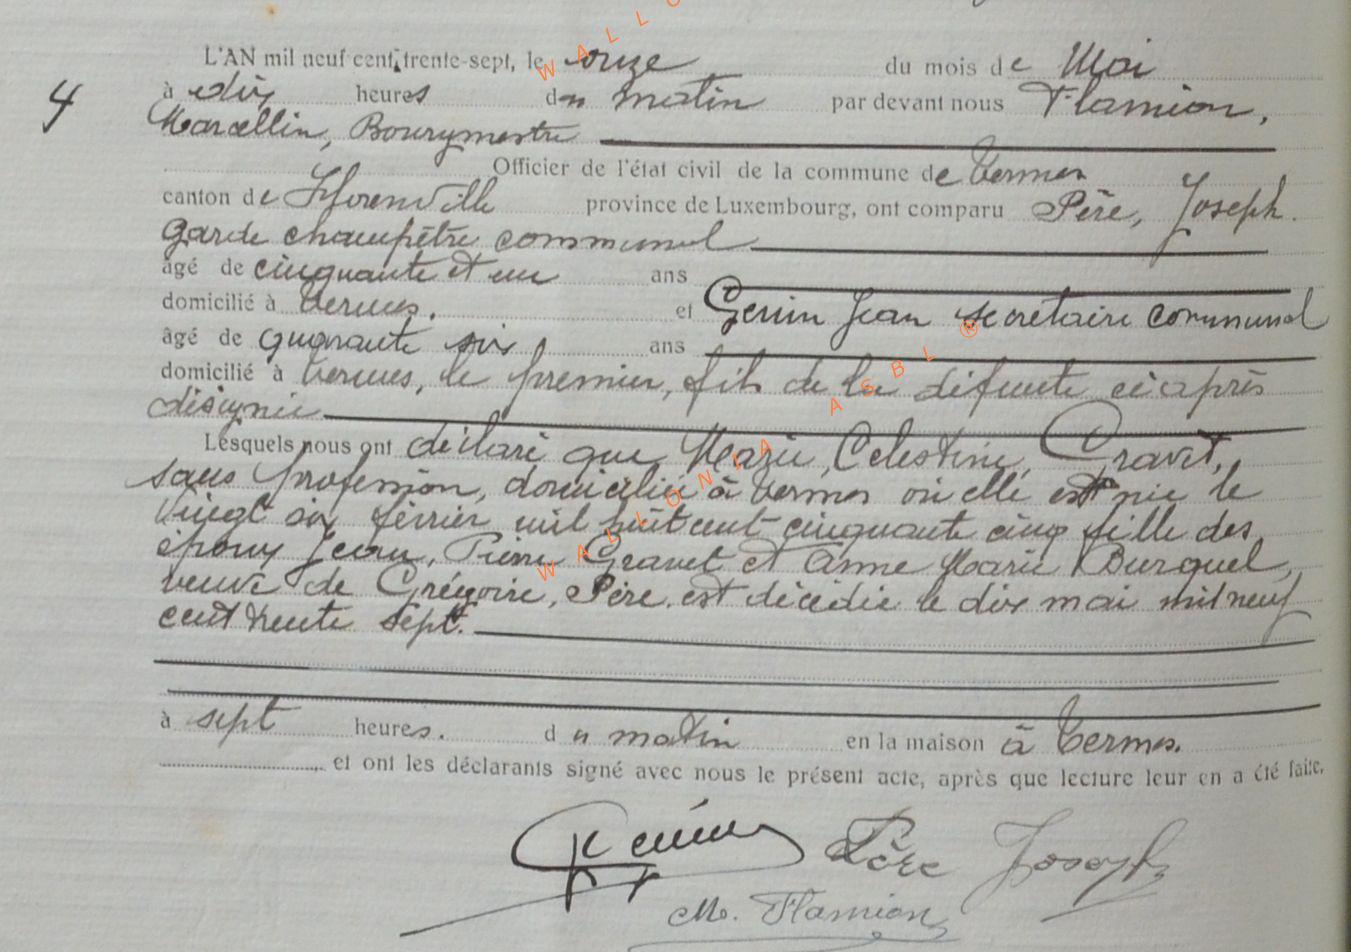 L'AN mil neuf cent trente-sept, le onze du mois de Mai
4 à dix heures du matin par devant nous Flamion,
Marcellin, Bourgmestre
Officier de l'état civil de la commune de Termes
canton de Florenville province de Luxembourg, ont comparu Père, Joseph.
Garde champêtre communal
âgé de cinquante et un ans
domicilié à Termes. et Genin Jean secretaire communal
âgé de quarante six ans
domicilié à Termes, le premier, fils de la défunte ci après
désignée
Lesquels nous ont déclaré que Marie, Celestine, Gravet,
sans profession, domiciliée à Termes où elle est née le
vingt six février mil huit cent cinquante cinq fille des
époux Jean, Pierre Gravet et Anne Marie Burquel,
veuve de Grégoire, Père, est décédée le dix mai mil neuf
cent trente sept.
à sept heures. du matin en la maison à Termes.
et ont les déclarants signé avec nous le présent acte, après que lecture leur en a été faite.
Genin Père Joseph
M. Flamion
WALLONIA ASBL ®
WALLO